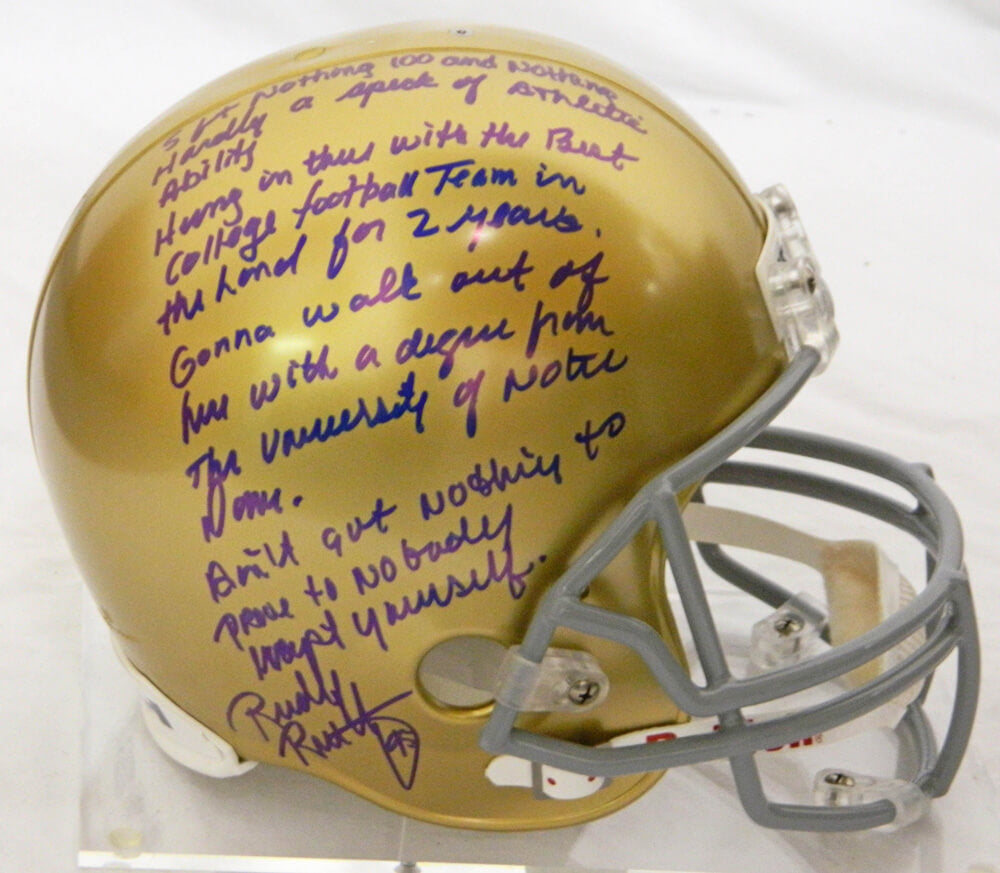 5 ft Nothing 100 and Nothing
Hardly a speck of Athletic
Ability
Hung in there with the Best
College football Team in
the Land for 2 years.
Gonna walk out of
here with a degree from
The University of Notre
Dame.
But out Nothing to
prove to Nobody
except yourself.
Rudy
Ruettiger